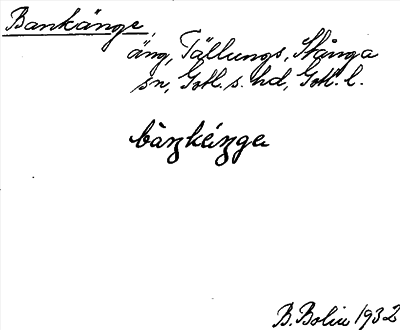 Bankänge,
äng, Tällungs, Stånga
sn, Gotl. s. hd, Gotl. l.
bàŋkéŋge
B. Bolin 1932